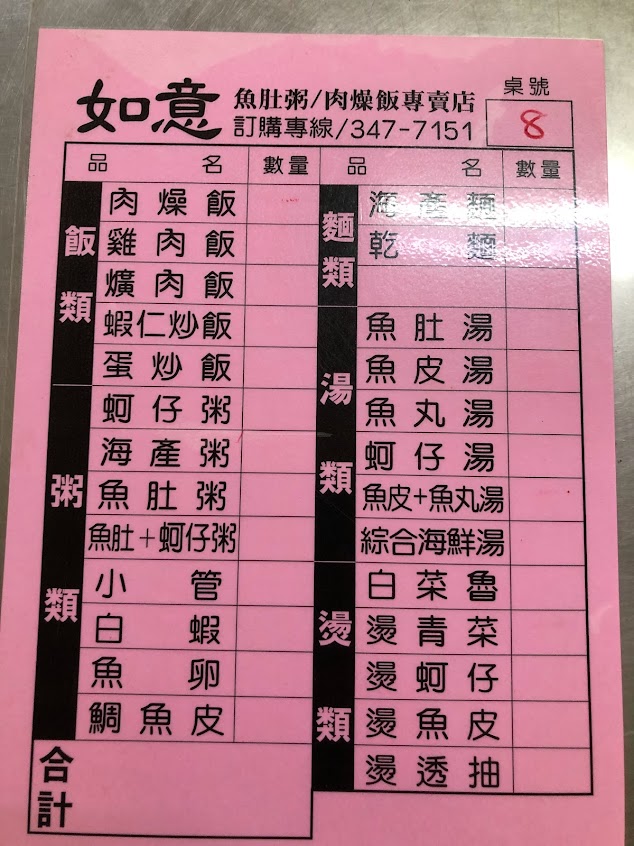 如意
魚肚粥/肉燥飯專賣店
訂購專線/347-7151
桌號
8
品名 數量 品名 數量
飯類
肉燥飯
雞肉飯
爌肉飯
蝦仁炒飯
蛋炒飯
粥類
蚵仔粥
海產粥
魚肚粥
魚肚+蚵仔粥
小管
白蝦
魚卵
鯛魚皮
合計
麵類
海產麵
乾麵
湯類
魚肚湯
魚皮湯
魚丸湯
蚵仔湯
魚皮+魚丸湯
綜合海鮮湯
燙類
白菜魯
燙青菜
燙蚵仔
燙魚皮
燙透抽